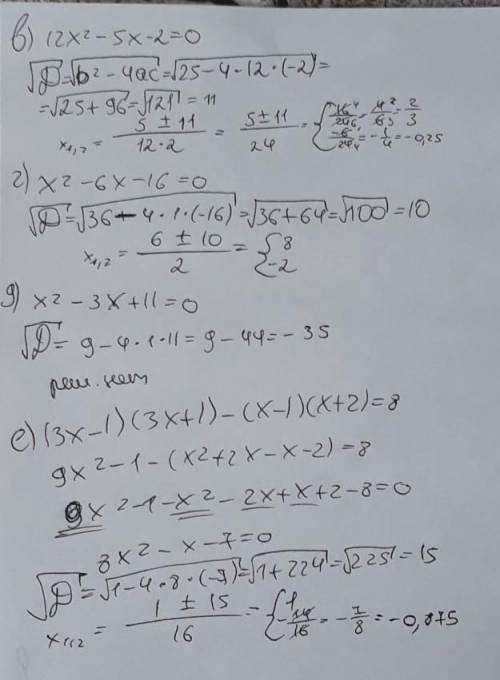 в) 12x² - 5x - 2 = 0
√D = √b² - 4ac = √25 - 4 - 12 · (-2) =
= √25 + 96 = √121 = 11
x₁,₂ = (5 ± 11)/(12 · 2) = (5 ± 11)/24 = { 16/24 = 4/6 = 2/3
-6/24 = -1/4 = -0,25
г) x² - 6x - 16 = 0
√D = √36 - 4 · 1 · (-16) = √36 + 64 = √100 = 10
x₁,₂ = (6 ± 10)/2 = { 8
-2
д) x² - 3x + 11 = 0
√D = 9 - 4 · 1 · 11 = 9 - 44 = -35
реш. нет
е) (3x - 1)(3x + 1) - (x - 1)(x + 2) = 8
9x² - 1 - (x² + 2x - x - 2) = 8
9x² - 1 - x² - 2x + x + 2 - 8 = 0
8x² - x - 7 = 0
√D = √1 - 4 · 8 · (-7) = √1 + 224 = √225 = 15
x₁,₂ = (1 ± 15)/16 = { 1
-14/16 = -7/8 = -0,875